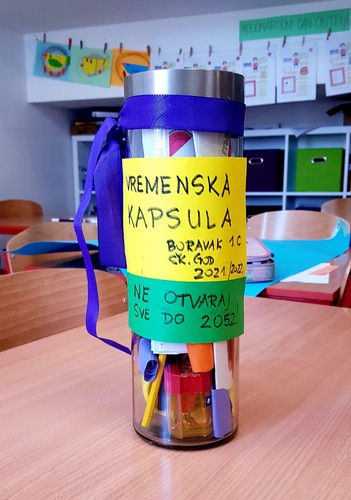 MEĐUNARODNI DAN OBITELJI
VREMENSKA
KAPSULA
BORAVAK 1.C
ŠK. GOD
2021./2022.
NE OTVARAJ
SVE DO 2052.!